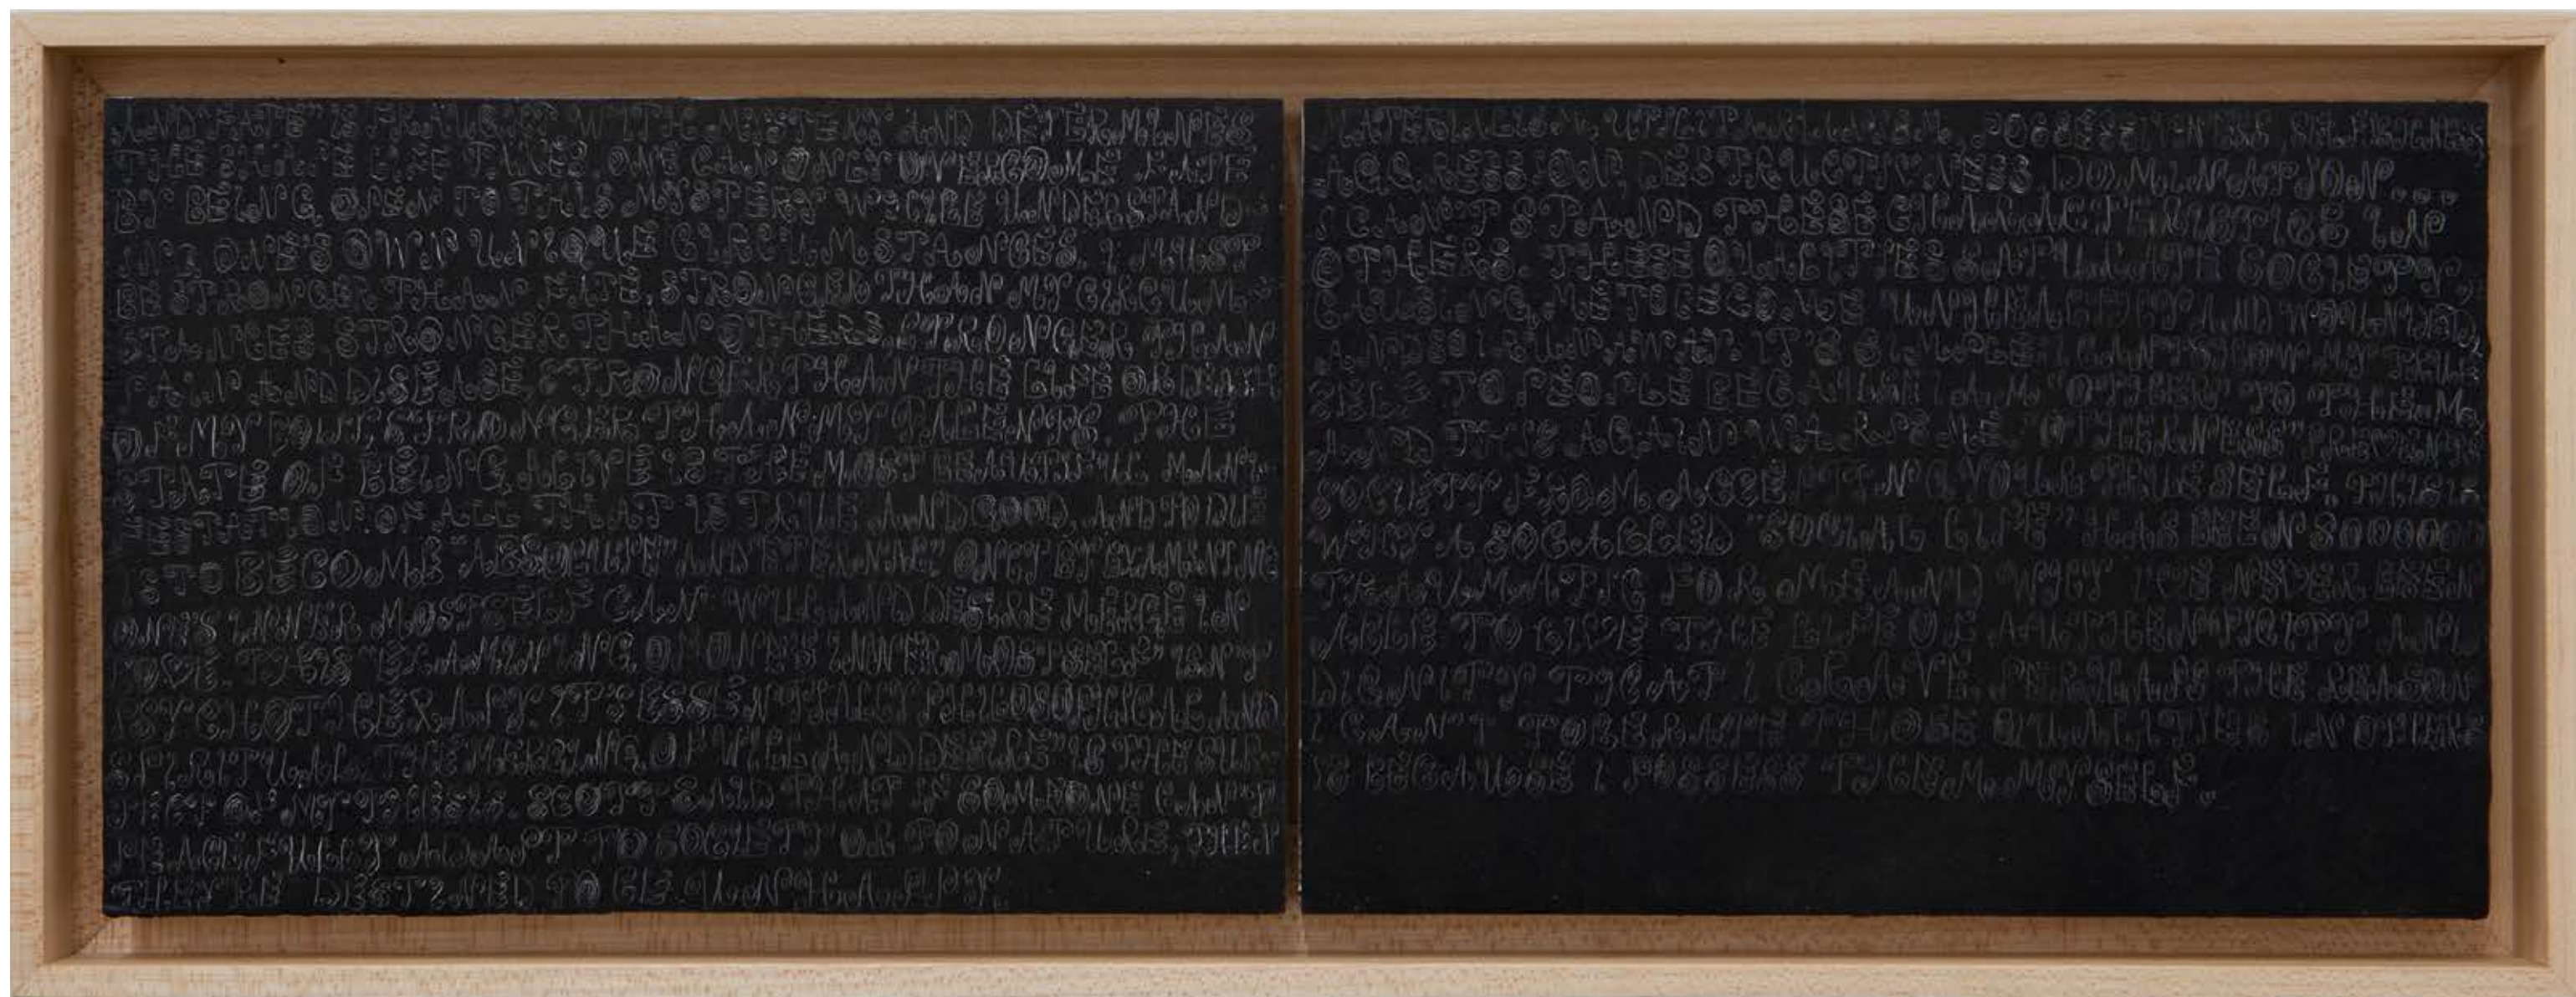 AND "FATE" IS FRAUGHT WITH MYSTERY AND DETERMINES
ONE CAN ONLY OVERCOME FATE
BY BEING OPEN TO THIS MYSTERY WHILE UNDERSTAND-
ING ONE'S OWN UNIQUE CIRCUMSTANCES. I MUST
BE STRONGER THAN FATE, STRONGER THAN MY CIRCUM-
STANCES, STRONGER THAN OTHERS, STRONGER THAN
PAIN AND DISEASE, STRONGER THAN THE LIFE OR DEATH
OF MY BODY, STRONGER THAN MY PARENTS. THE
STATE OF BEING ALIVE IS THE MOST BEAUTIFUL MANI-
FESTATION OF ALL THAT IS TRUE AND GOOD, AND SHOULD
TO BECOME "ABSOLUTE" AND ETERNAL. ONLY BY EXAMINING
ONE'S INNER MOST SELF CAN WILL AND DESIRE MERGE IN
LOVE. THIS "EXAMINING OF ONE'S INNERMOST SELF" ISN'T
PSYCHOTHERAPY. IT'S ESSENTIALLY PHILOSOPHICAL AND
SPIRITUAL. THE MERGING OF WILL AND DESIRE IS THE SUB-
JECT OF MY THESIS. SCOTT SAID THAT IF SOMEONE CAN'T
PEACEFULLY ADAPT TO SOCIETY OR TO NATURE, THEN
THEY'RE DESTINED TO BE UNHAPPY.
MATERIALISM, UTILITARIANISM, POSSESSIVENESS, SELFISHNESS,
AGGRESSION, DESTRUCTIVENESS, DOMINATION....
I CAN'T STAND THESE CHARACTERISTICS IN
OTHERS. THESE QUALITIES SATURATE SOCIETY,
CAUSING ME TO BECOME AND WOUNDED,
AND SO I RUN AWAY. IT'S SIMPLE: I CAN'T SHOW MY TRUE
SELF TO PEOPLE BECAUSE I AM "OTHER" TO THEM,
AND THIS AGAIN WAKES ME. "OTHERNESS" PREVENTS
SOCIETY FROM ACCEPTING YOUR TRUE SELF. THIS IS
WHY A SO CALLED "SOCIAL LIFE" HAS BEEN SOOOOOO
TRAUMATIC FOR ME AND WHY I'VE NEVER BEEN
ABLE TO LIVE THE LIFE OF AUTHENTICITY AND
DIGNITY THAT I CRAVE. PERHAPS THE REASON
I CAN'T TOLERATE THOSE QUALITIES IN OTHERS
IS BECAUSE I POSSESS THEM MYSELF.